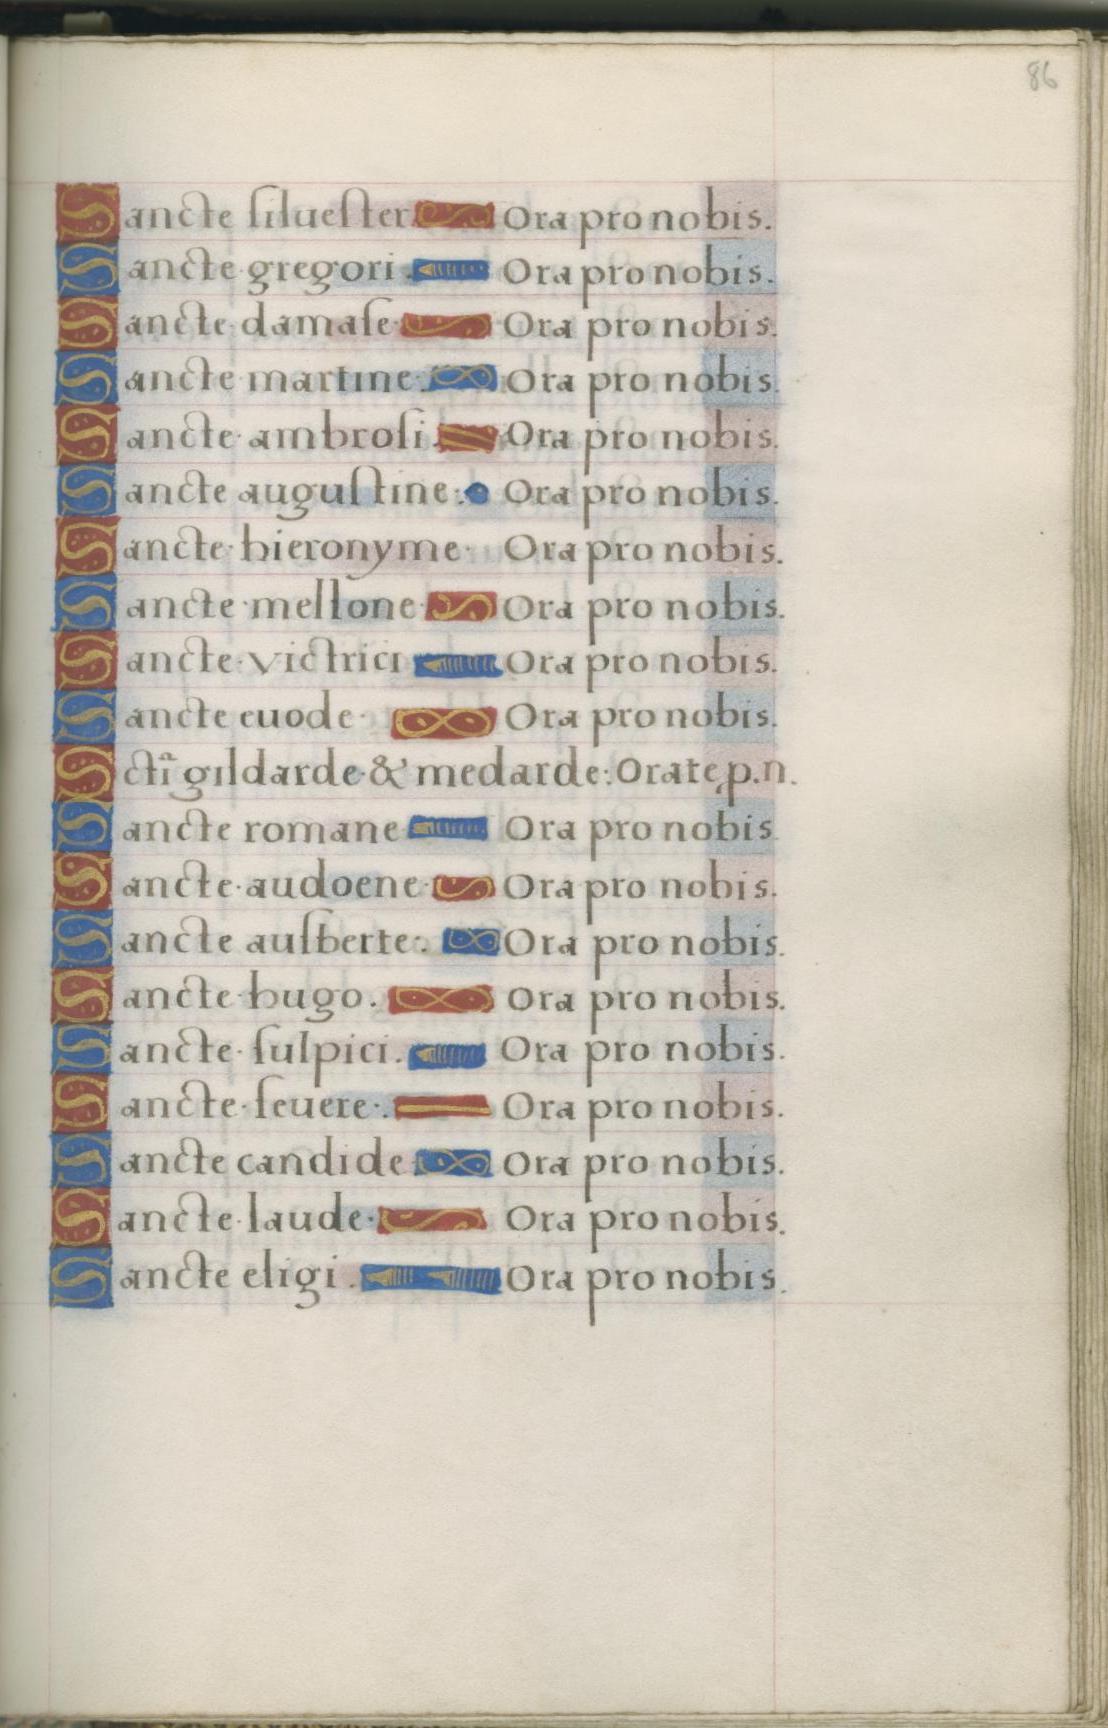 86
Sancte silvester Ora pro nobis.
Sancte gregori. Ora pro nobis.
Sancte damase Ora pro nobis.
Sancte martine. Ora pro nobis.
Sancte ambrosi. Ora pro nobis.
Sancte augustine. Ora pro nobis.
Sancte hieronyme Ora pro nobis.
Sancte mellone Ora pro nobis.
Sancte victrici Ora pro nobis.
Sancte euode Ora pro nobis.
Sctī gildarde & medarde: Orate p.n.
Sancte romane Ora pro nobis
Sancte audoene Ora pro nobis.
Sancte ausberte. Ora pro nobis.
Sancte hugo. Ora pro nobis.
Sancte sulpici. Ora pro nobis.
Sancte seuere. Ora pro nobis.
Sancte candide Ora pro nobis.
Sancte laude Ora pro nobis.
Sancte eligi. Ora pro nobis.